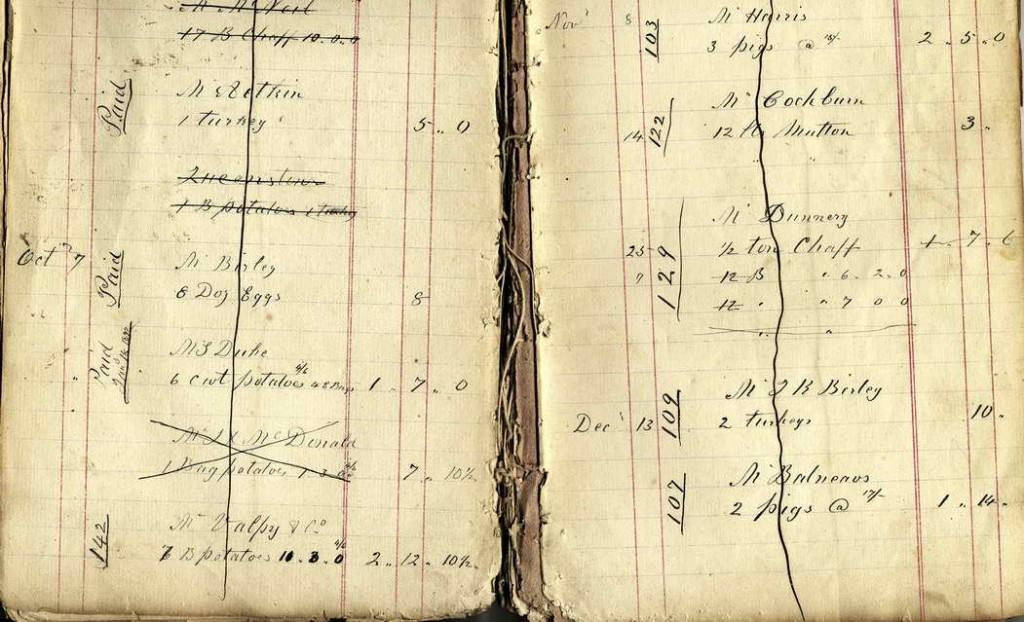 Mr McNeil
17 B Chaff 10.0.0
Paid
Mr Aitkin
1 turkey 5 .. 0
Queenstown
1 B potatoes 1 turkey
Oct 7
Paid
Mr Birley
8 Doz Eggs 8
Paid
Mrs Duke
6 Cwt potatoes 4/6 1 .. 7 .. 0
McDonald
1 Bag potatoes 1 - 3 7 .. 10½
142
Mr Valpy & Co
7 B potatoes 11 . 3 . 0 4/6 2 .. 12 .. 10½
Nov 8
103
Mr Harris
3 pigs @ 15/- 2 .. 5 .. 0
122
Mr Cockburn
14 12 lb Mutton 3 ..
129
Mr Dunnery
25 ½ ton Chaff 1 .. 7 .. 6
9 12 B " 6 . 2 . 0
12 " " 7 0 0
" "
109
Mr J R Birley
Dec 13 2 turkeys 10 ..
107
Mr Balneavs
2 pigs @ 17/- 1 .. 14 ..